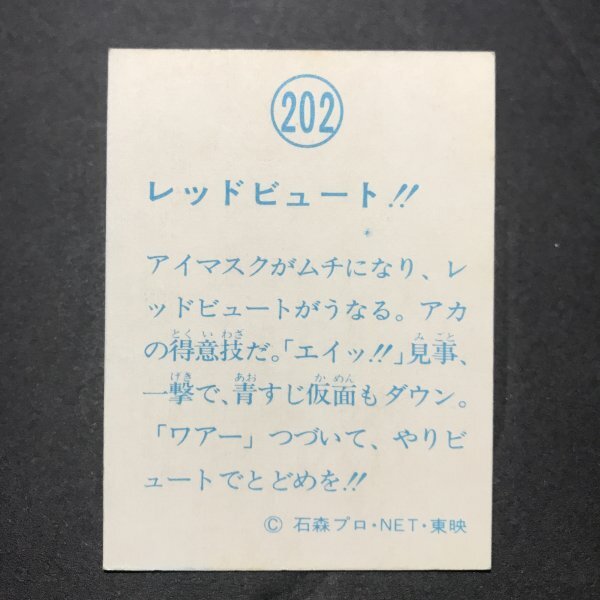 202
レッドビュート!!
アイマスクがムチになり、レ
ッドビュートがうなる。アカ
の得意技だ。「エイッ!!」見事、
一撃で、青すじ仮面もダウン。
「ワアー」つづいて、やりビ
ュートでとどめを!!
© 石森プロ・NET・東映